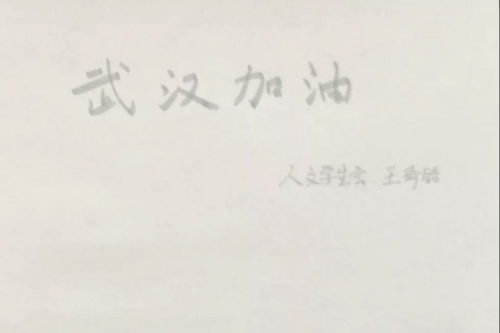 武汉加油
人文学生会 王